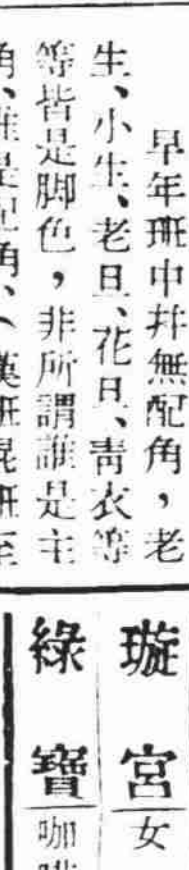 早年班中幷無配角，老
生、小生、老旦、花旦、靑衣等
等皆是脚色，非所謂誰是主
角、誰是配角、（漢班
璇宮
女
綠寶
咖